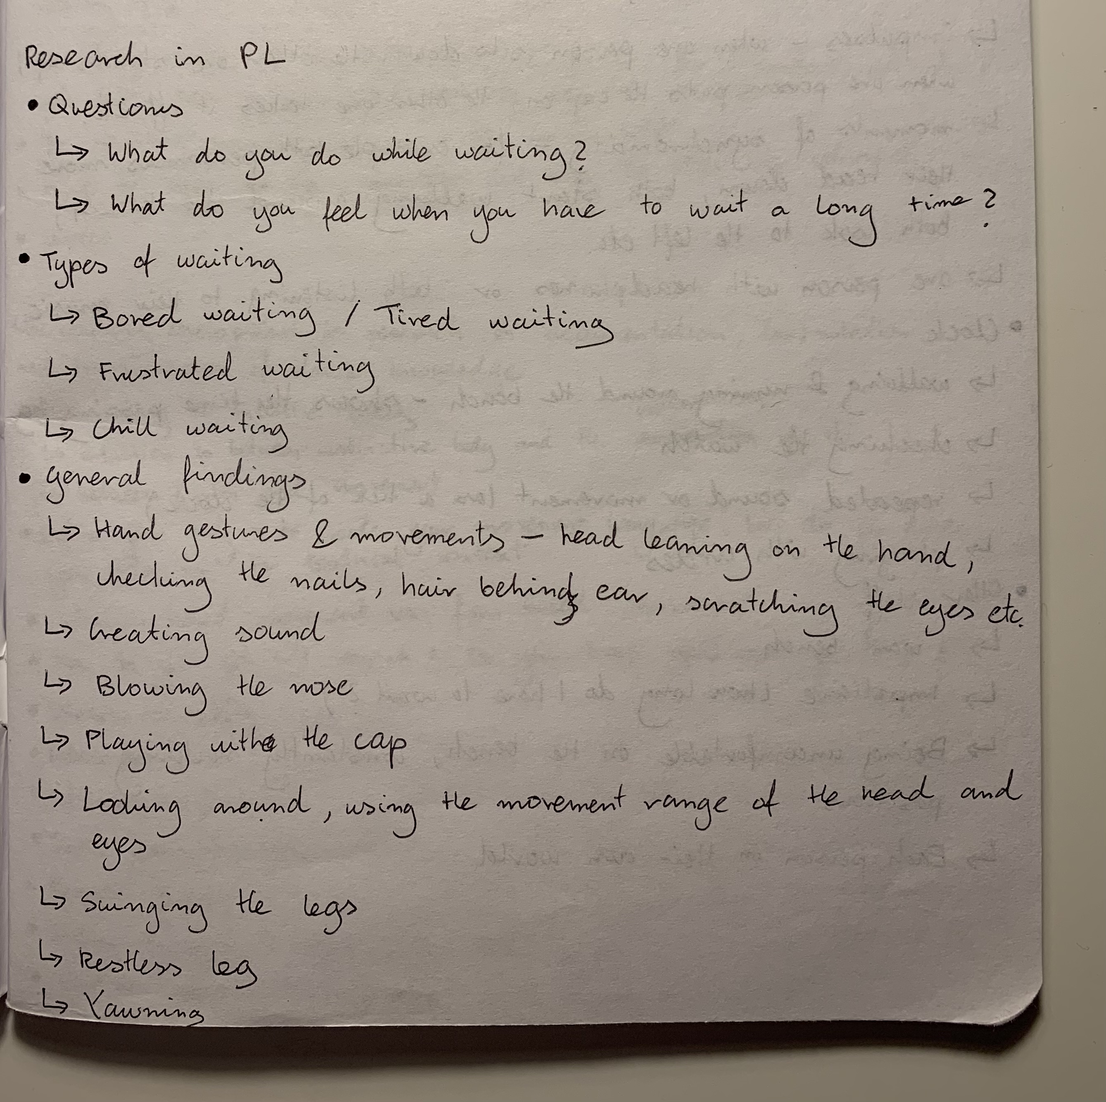 Research in PL
• Questions
↳ What do you do while waiting?
↳ What do you feel when you have to wait a long time?
• Types of waiting
↳ Bored waiting / Tired waiting
↳ Frustrated waiting
↳ Chill waiting
• General findings
↳ Hand gestures & movements – head leaning on the hand,
checking the nails, hair behind ear, scratching the eyes etc.
↳ Creating sound
↳ Blowing the nose
↳ Playing with the cap
↳ Looking around, using the movement range of the head and
eyes
↳ Swinging the legs
↳ Restless leg
↳ Yawning